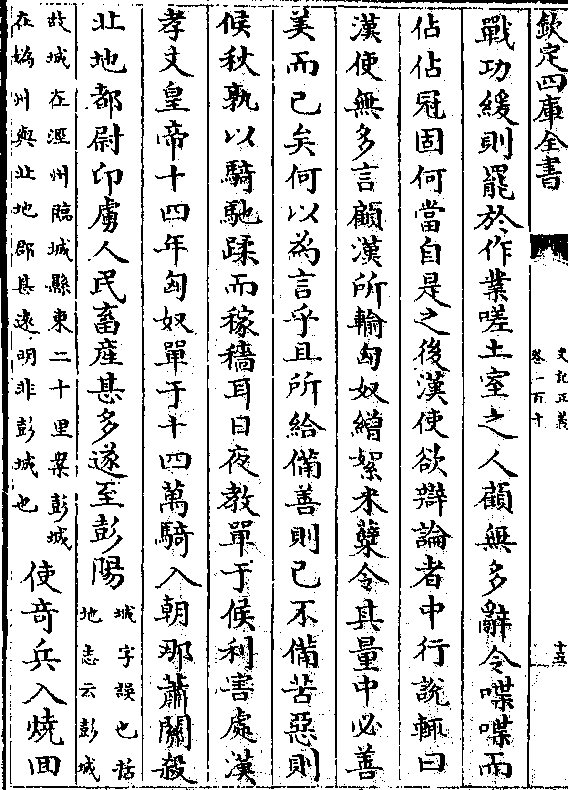 欽定四庫全書
史記正義
卷一百十
十五
戰功緩則罷於作業嗟土室之人顧無多辭令喋喋而
佔佔冠固何當自是之後漢使欲辯論者中行說輒曰
漢使無多言顧漢所輸匈奴繒絮米糵令其量中必善
美而已矣何以為言乎且所給備善則已不備苦惡則
候秋孰以騎馳蹂而稼穡耳日夜教單于候利害處漢
孝文皇帝十四年匈奴單于十四萬騎入朝那蕭關殺
北地都尉卬虜人民畜産甚多遂至彭陽
城字誤也括
地志云彭城
故城在涇州臨城縣東二十里案彭城
在媯州與北地郡甚遠明非彭城也
使奇兵入燒回